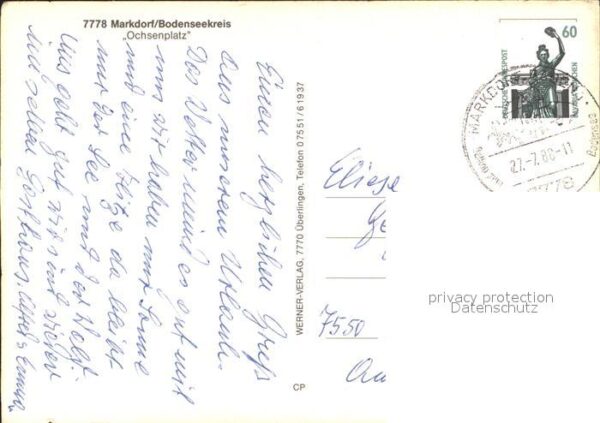 7778 Markdorf/Bodenseekreis
„Ochsenplatz"
Einen herzlichen Gruß
aus unserem Urlaub.
Das Wetter meint es gut mit
uns wir haben nur Sonne
und eine Hitze da bleibt
nur der See und der Wald
Uns geht gut wir sind wieder
im selben Gasthaus.
WERNER-VERLAG, 7770 Überlingen, Telefon 07551/61937
CP
60
DEUTSCHE BUNDESPOST
MÜNCHEN
MARKDORF
27.-7.88-11
7778
Bodensee
7550
privacy protection
Datenschutz